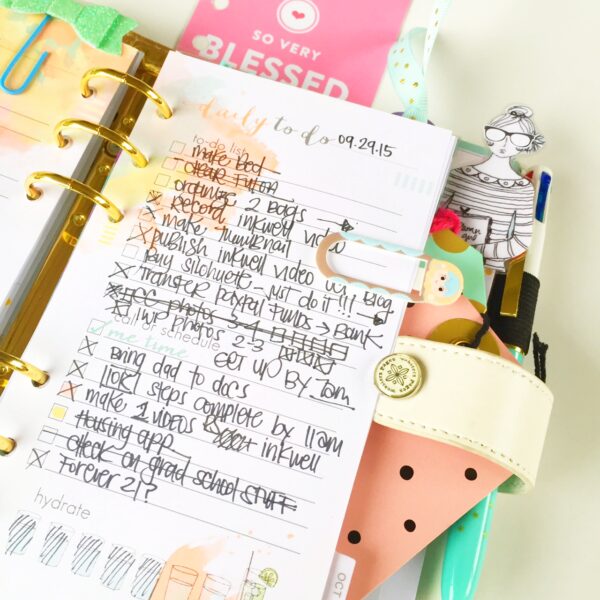 SO VERY
BLESSED
daily to do 09.29.15
to-do list
make bed
organize 2 bags
Record inkwell video
make thumbnail
publish inkwell video w/ Blog
Buy silohuete - just do it!!!
Transfer Paypal Funds → Bank
photos 3-4
Photos 2-3
call of schedule
me time
GET UP BY 7am
Bring dad to docs
steps complete by 11am
make 2 videos inkwell
Housing app
check on grad school stuff
Forever 21?
hydrate
OCT